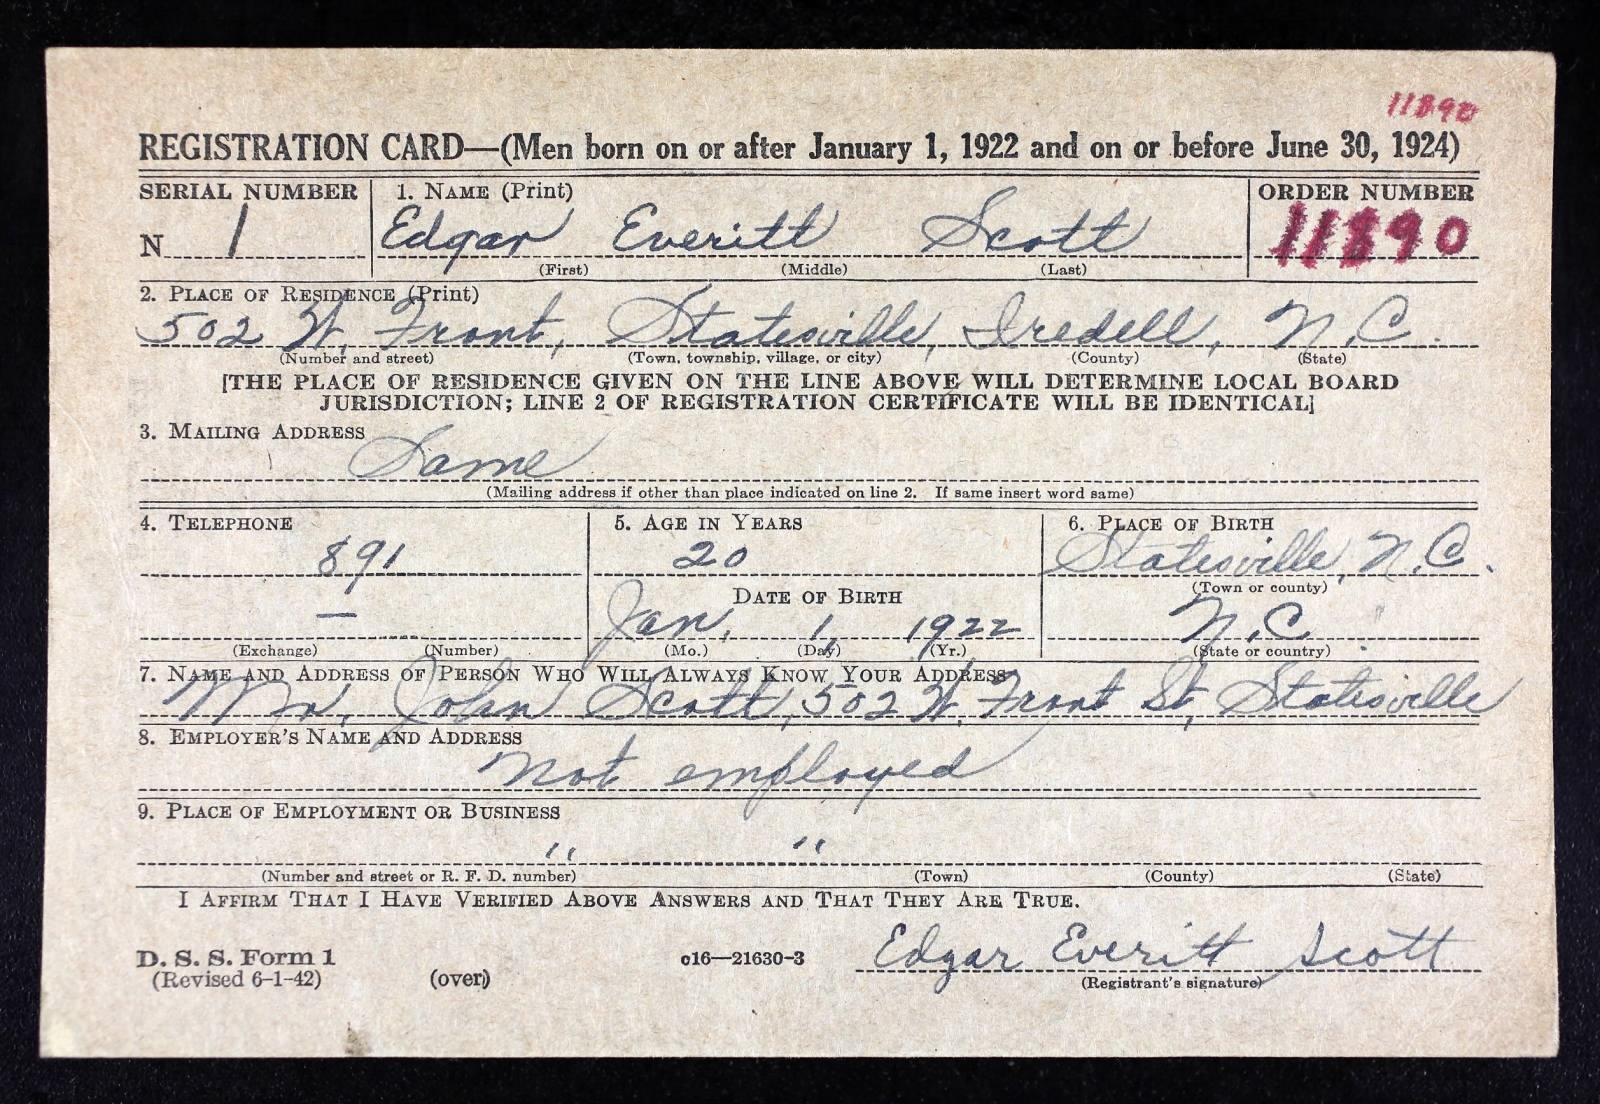 11890
REGISTRATION CARD—(Men born on or after January 1, 1922 and on or before June 30, 1924)
SERIAL NUMBER 1. NAME (Print) ORDER NUMBER
N 1 Edgar Everitt Scott 11890
(First) (Middle) (Last)
2. PLACE OF RESIDENCE (Print)
502 W. Front, Statesville, Iredell, N.C.
(Number and street) (Town, township, village, or city) (County) (State)
[THE PLACE OF RESIDENCE GIVEN ON THE LINE ABOVE WILL DETERMINE LOCAL BOARD
JURISDICTION; LINE 2 OF REGISTRATION CERTIFICATE WILL BE IDENTICAL]
3. MAILING ADDRESS
Same
(Mailing address if other than place indicated on line 2. If same insert word same)
4. TELEPHONE 5. AGE IN YEARS 6. PLACE OF BIRTH
891 20 Statesville, N.C.
DATE OF BIRTH (Town or county)
— Jan. 1, 1922 N.C.
(Exchange) (Number) (Mo.) (Day) (Yr.) (State or country)
7. NAME AND ADDRESS OF PERSON WHO WILL ALWAYS KNOW YOUR ADDRESS
Mr. John Scott, 502 W. Front St, Statesville
8. EMPLOYER'S NAME AND ADDRESS
not employed
9. PLACE OF EMPLOYMENT OR BUSINESS
" "
(Number and street or R. F. D. number) (Town) (County) (State)
I AFFIRM THAT I HAVE VERIFIED ABOVE ANSWERS AND THAT THEY ARE TRUE.
Edgar Everitt Scott
D. S. S. Form 1 c16—21630-3
(Revised 6-1-42) (over) (Registrant's signature)